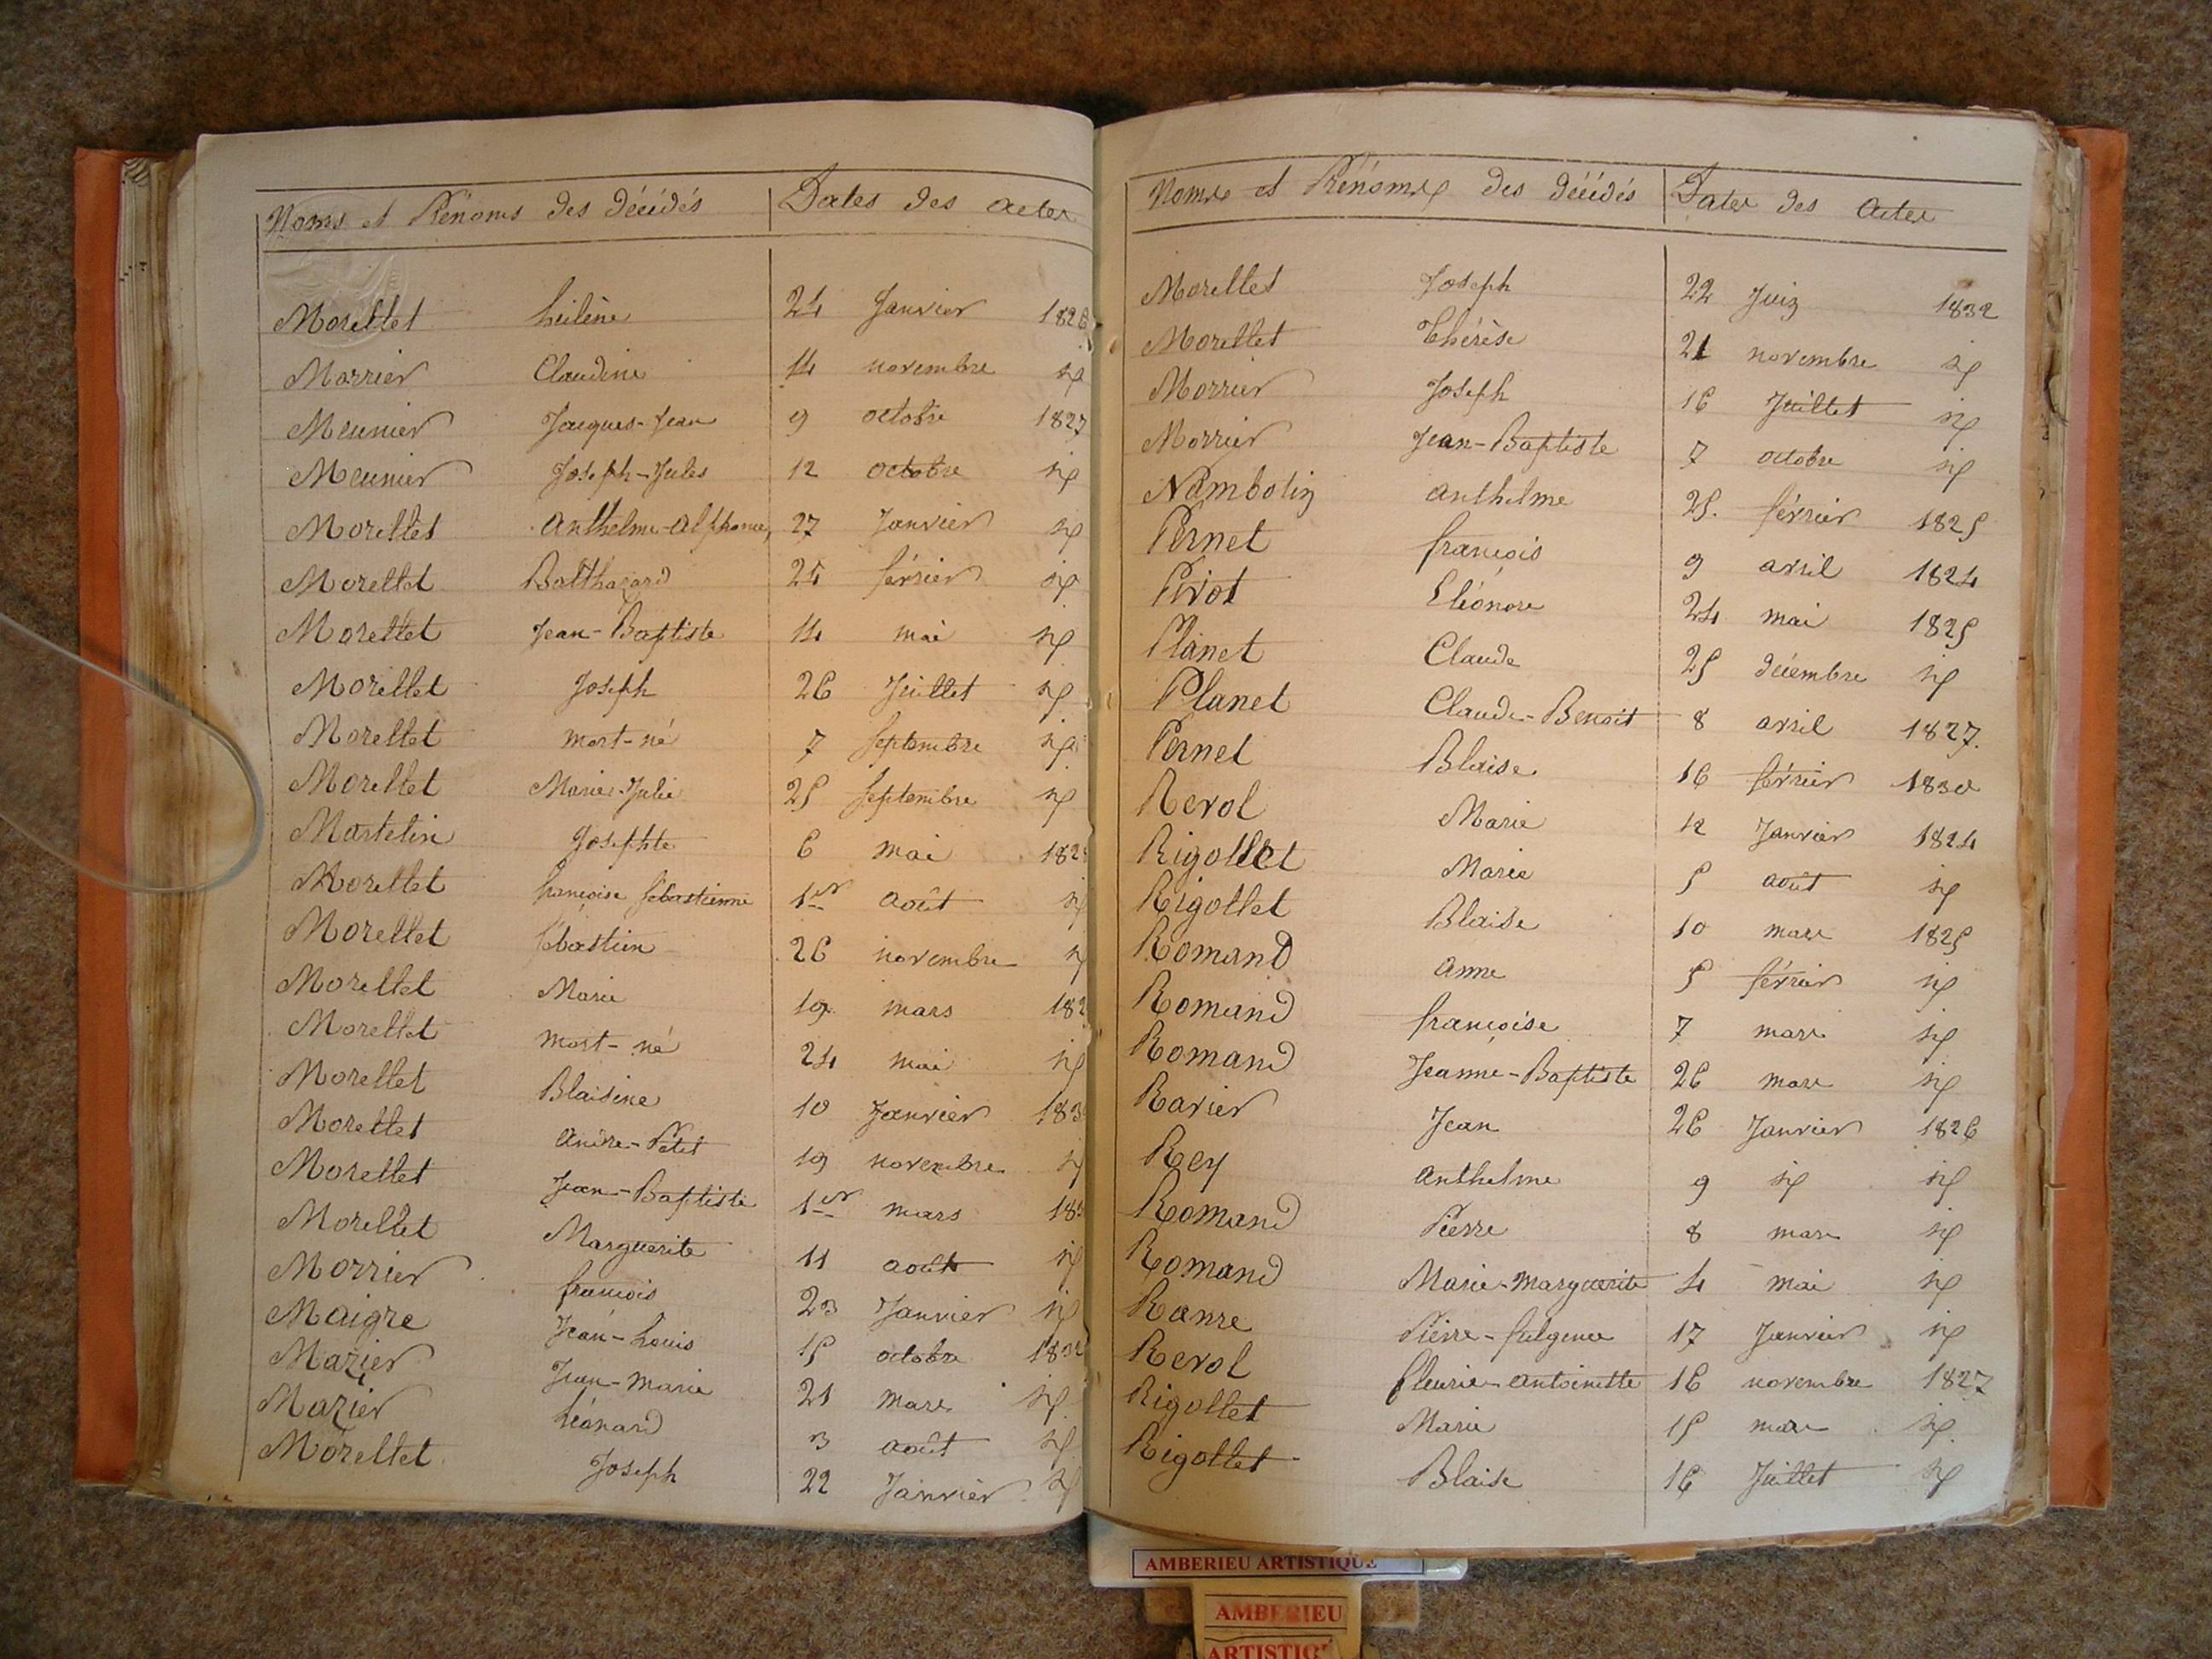 Noms et Prénoms des décédés Dates des actes
Morellet hélène 24 Janvier 1826
Morrier Claudine 14 novembre id
Meunier Jacques-Jean 9 octobre 1827
Meunier Joseph-Jules 12 octobre id
Morellet Anthelme-Alphonse 27 Janvier id
Morellet Balthazard 24 février id
Morellet Jean-Baptiste 14 mai id
Morellet Joseph 26 Juillet id
Morellet mort-né 7 septembre id
Morellet Marie-Julie 25 septembre id
Martelin Josephte 6 mai
Morellet françoise sébastienne 1er août
Morellet sébastien 26 novembre
Morellet Marie 19 mars
Morellet mort-né 24 mai id
Morellet Blaisine 10 Janvier
Morellet André-Petit 19 novembre
Morellet Jean-Baptiste 1er mars
Morellet Marguerite 11 août id
Morrier françois 23 Janvier id
Maigre Jean-Louis 15 octobre 1832
Mazier Jean-marie 21 mars id
Mazier Léonard 3 août id
Morellet Joseph 22 Janvier id
Noms et Prénoms des décédés Dates des actes
Morellet Joseph 22 Juin 1832
Morellet Thérèse 21 novembre id
Morrier Joseph 16 Juillet id
Morrier Jean-Baptiste 7 octobre id
Nambotin anthelme 25 février 1825
Pernet françois 9 avril 1824
Pivot Eléonore 24 mai 1825
Planet Claude 25 décembre id
Planet Claude-Benoit 8 avril 1827
Pernet Blaise 16 février 1830
Revol Marie 12 Janvier 1824
Rigollet Marie 5 août id
Rigollet Blaise 10 mars 1825
Romand anne 5 février id
Romand françoise 7 mars id
Romand Jeanne-Baptiste 26 mars id
Ravier Jean 26 Janvier 1826
Rey anthelme 9 id id
Romand Pierre 8 mars id
Romand Marie-marguerite 4 mai id
Pierre-fulgence 17 Janvier id
Revol fleurie-antoinette 16 novembre 1827
Rigollet Marie 15 mars id
Rigollet Blaise 16 Juillet id
AMBERIEU ARTISTIQUE
AMBERIEU